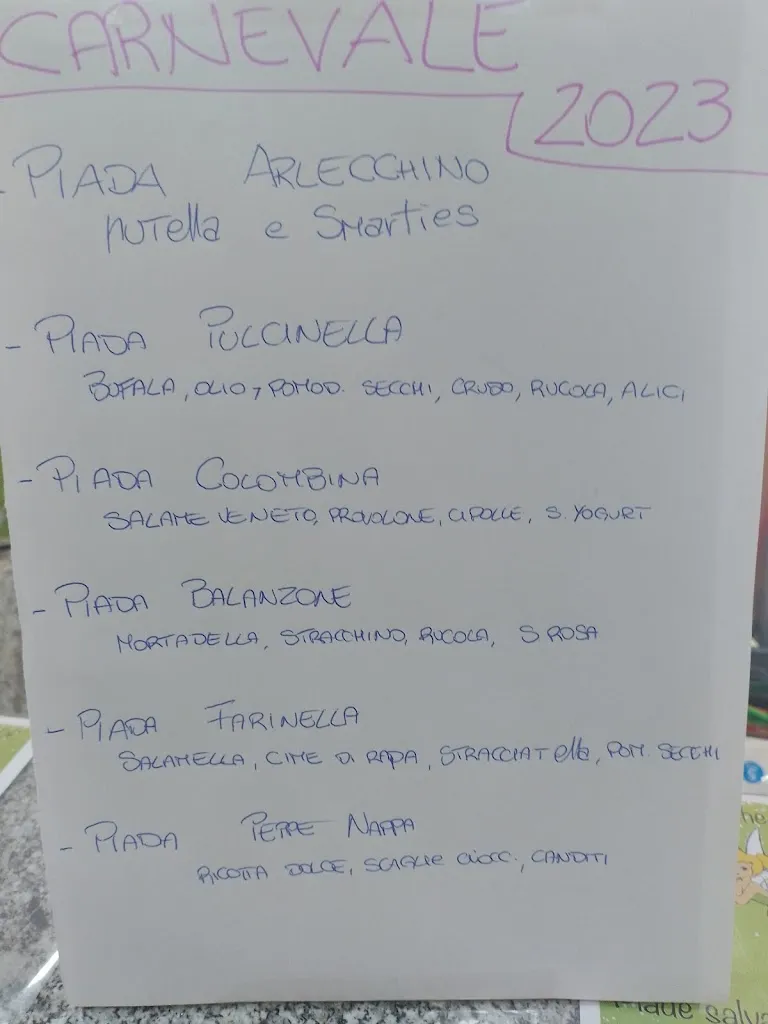 CARNEVALE
2023
- PIADA ARLECCHINO
NUTella e SMarties
- PIADA PULCINELLA
BUFALA, OLIO, POMOD. SECCHI, CRUDO, RUCOLA, ALICI
- PIADA COLOMBINA
SALAME VENETO, PROVOLONE, CIPOLLE, S. YOGURT
- PIADA BALANZONE
MORTADELLA, STRACCHINO, RUCOLA, S ROSA
- PIADA FARINELLA
SALAMELLA, CIME DI RAPA, STRACCIATella, POM. SECCHI
- PIADA PEPPE NAPPA
RICOTTA DOLCE, SCAGLIE CIOCC., CANDITI
he
Made salva